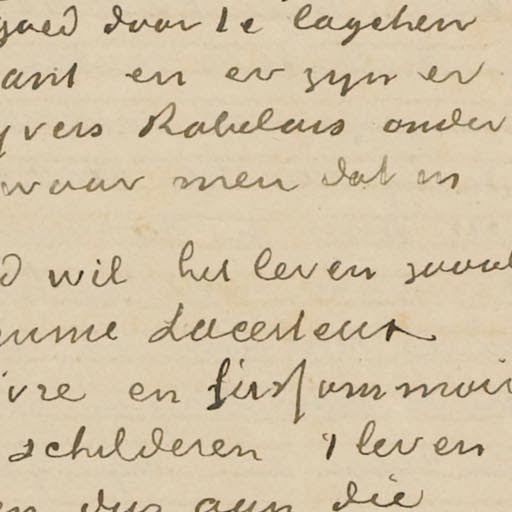 goed door te lagchen
ant en er zyn er
yvers Rabelais onder
waar men dat in
d wil het leven zooal
emme Lacerteux
ivre en l'assommoir
schilderen 't leven
en dus aan die